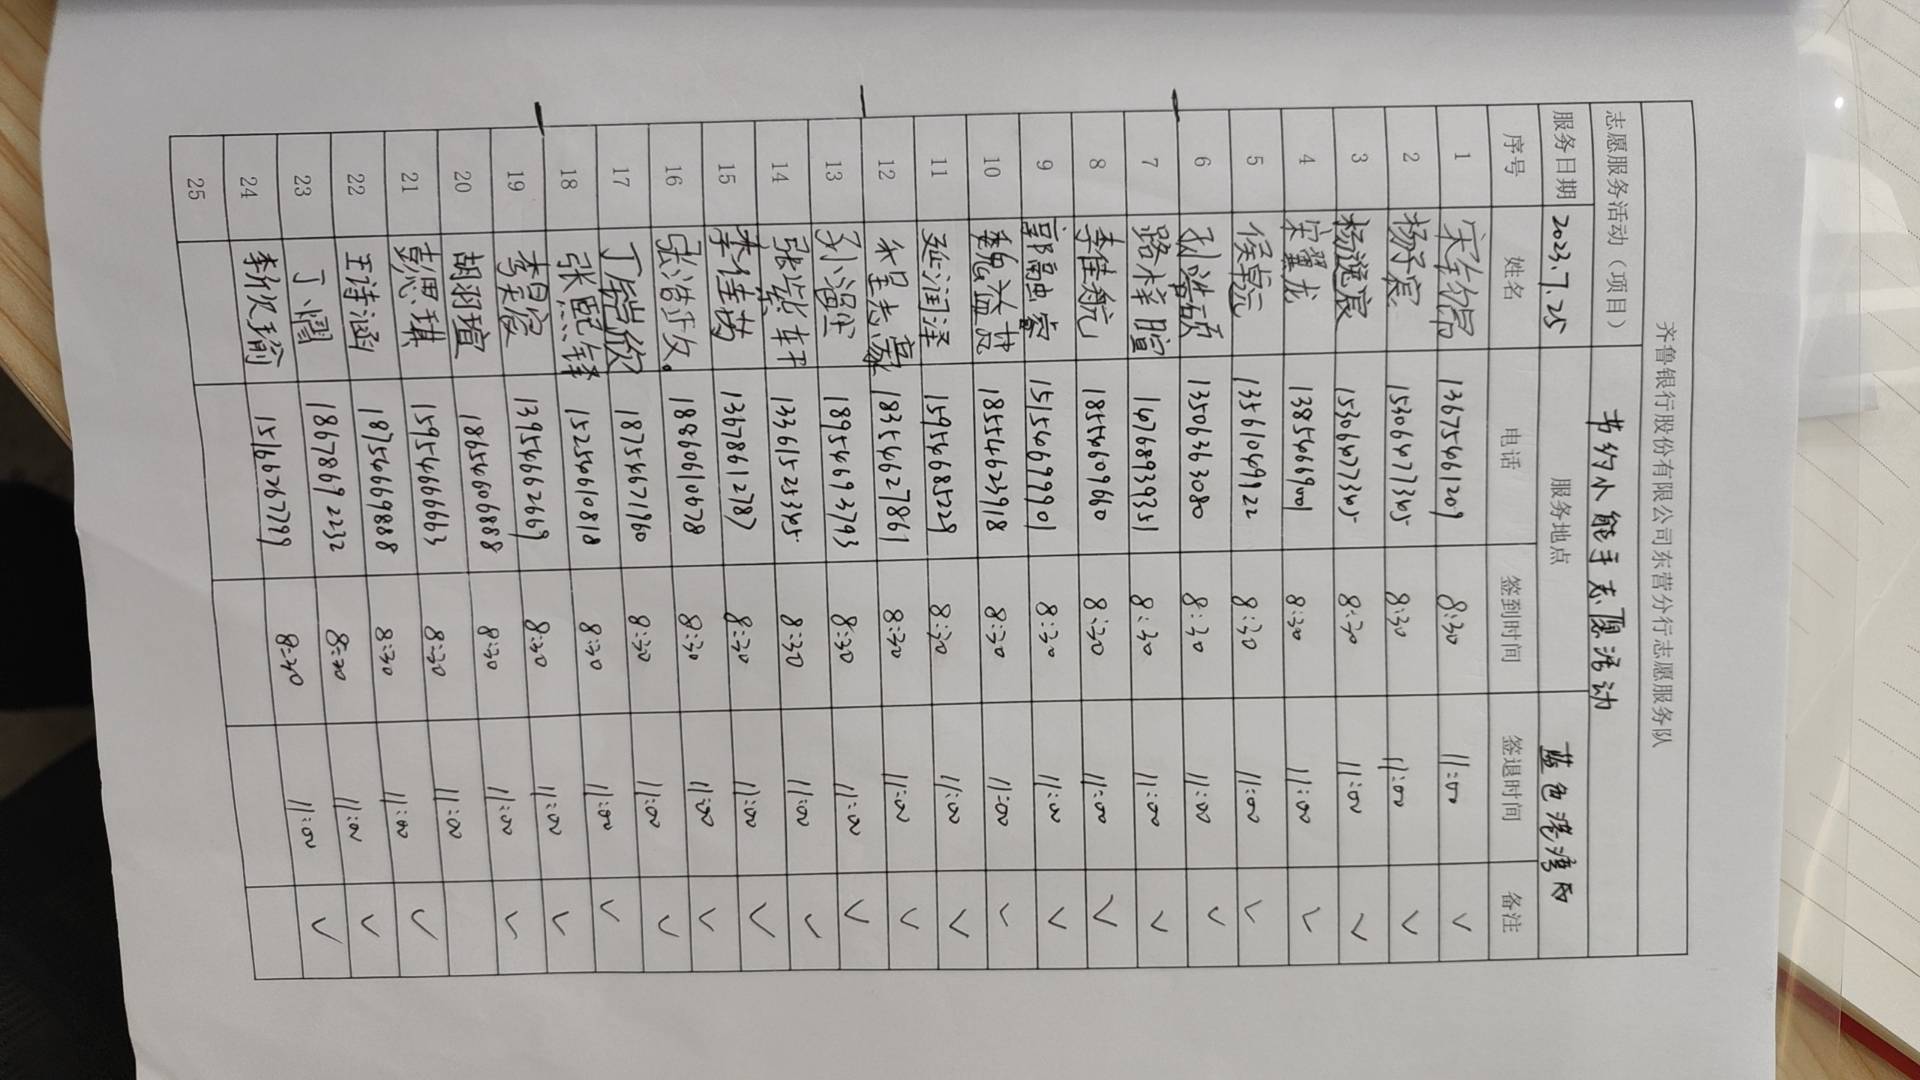 齐鲁银行股份有限公司东营分行志愿服务队
志愿服务活动（项目） 节约小能手志愿活动
服务日期 2023.7.25 服务地点 蓝色港湾
序号 姓名 电话 签到时间 签退时间 备注
1 13675461209 8:30 11:00 ✓
2 杨子宸 15306477345 8:30 11:00 ✓
3 杨逸宸 15306477345 8:30 11:00 ✓
4 宋翼龙 13854066900 8:30 11:00 ✓
5 侯卓元 13561049922 8:30 11:00 ✓
6 孙浩硕 13506363080 8:30 11:00 ✓
7 路梓暄 14768939351 8:30 11:00 ✓
8 李佳航 18554460960 8:30 11:00 ✓
9 郭融睿 15154699901 8:30 11:00 ✓
10 魏益 18554623918 8:30 11:00 ✓
11 延润泽 15954685229 8:30 11:00 ✓
12 18354627861 8:30 11:00 ✓
13 孙温 18954693793 8:30 11:00 ✓
14 张紫轩 13361525345 8:30 11:00 ✓
15 李佳芮 13678612787 8:30 11:00 ✓
16 张浩 18806010678 8:30 11:00 ✓
17 丁尚欣 18754671960 8:30 11:00 ✓
18 张熙铎 15254610818 8:30 11:00 ✓
19 李昊宸 13954662669 8:30 11:00 ✓
20 胡羽瑄 18654606888 8:30 11:00
21 彭思琪 15954666663 8:30 11:00 ✓
22 王诗涵 18754669888 8:30 11:00 ✓
23 丁熠 18678692232 8:30 11:00 ✓
24 15166267799 8:30 11:00 ✓
25